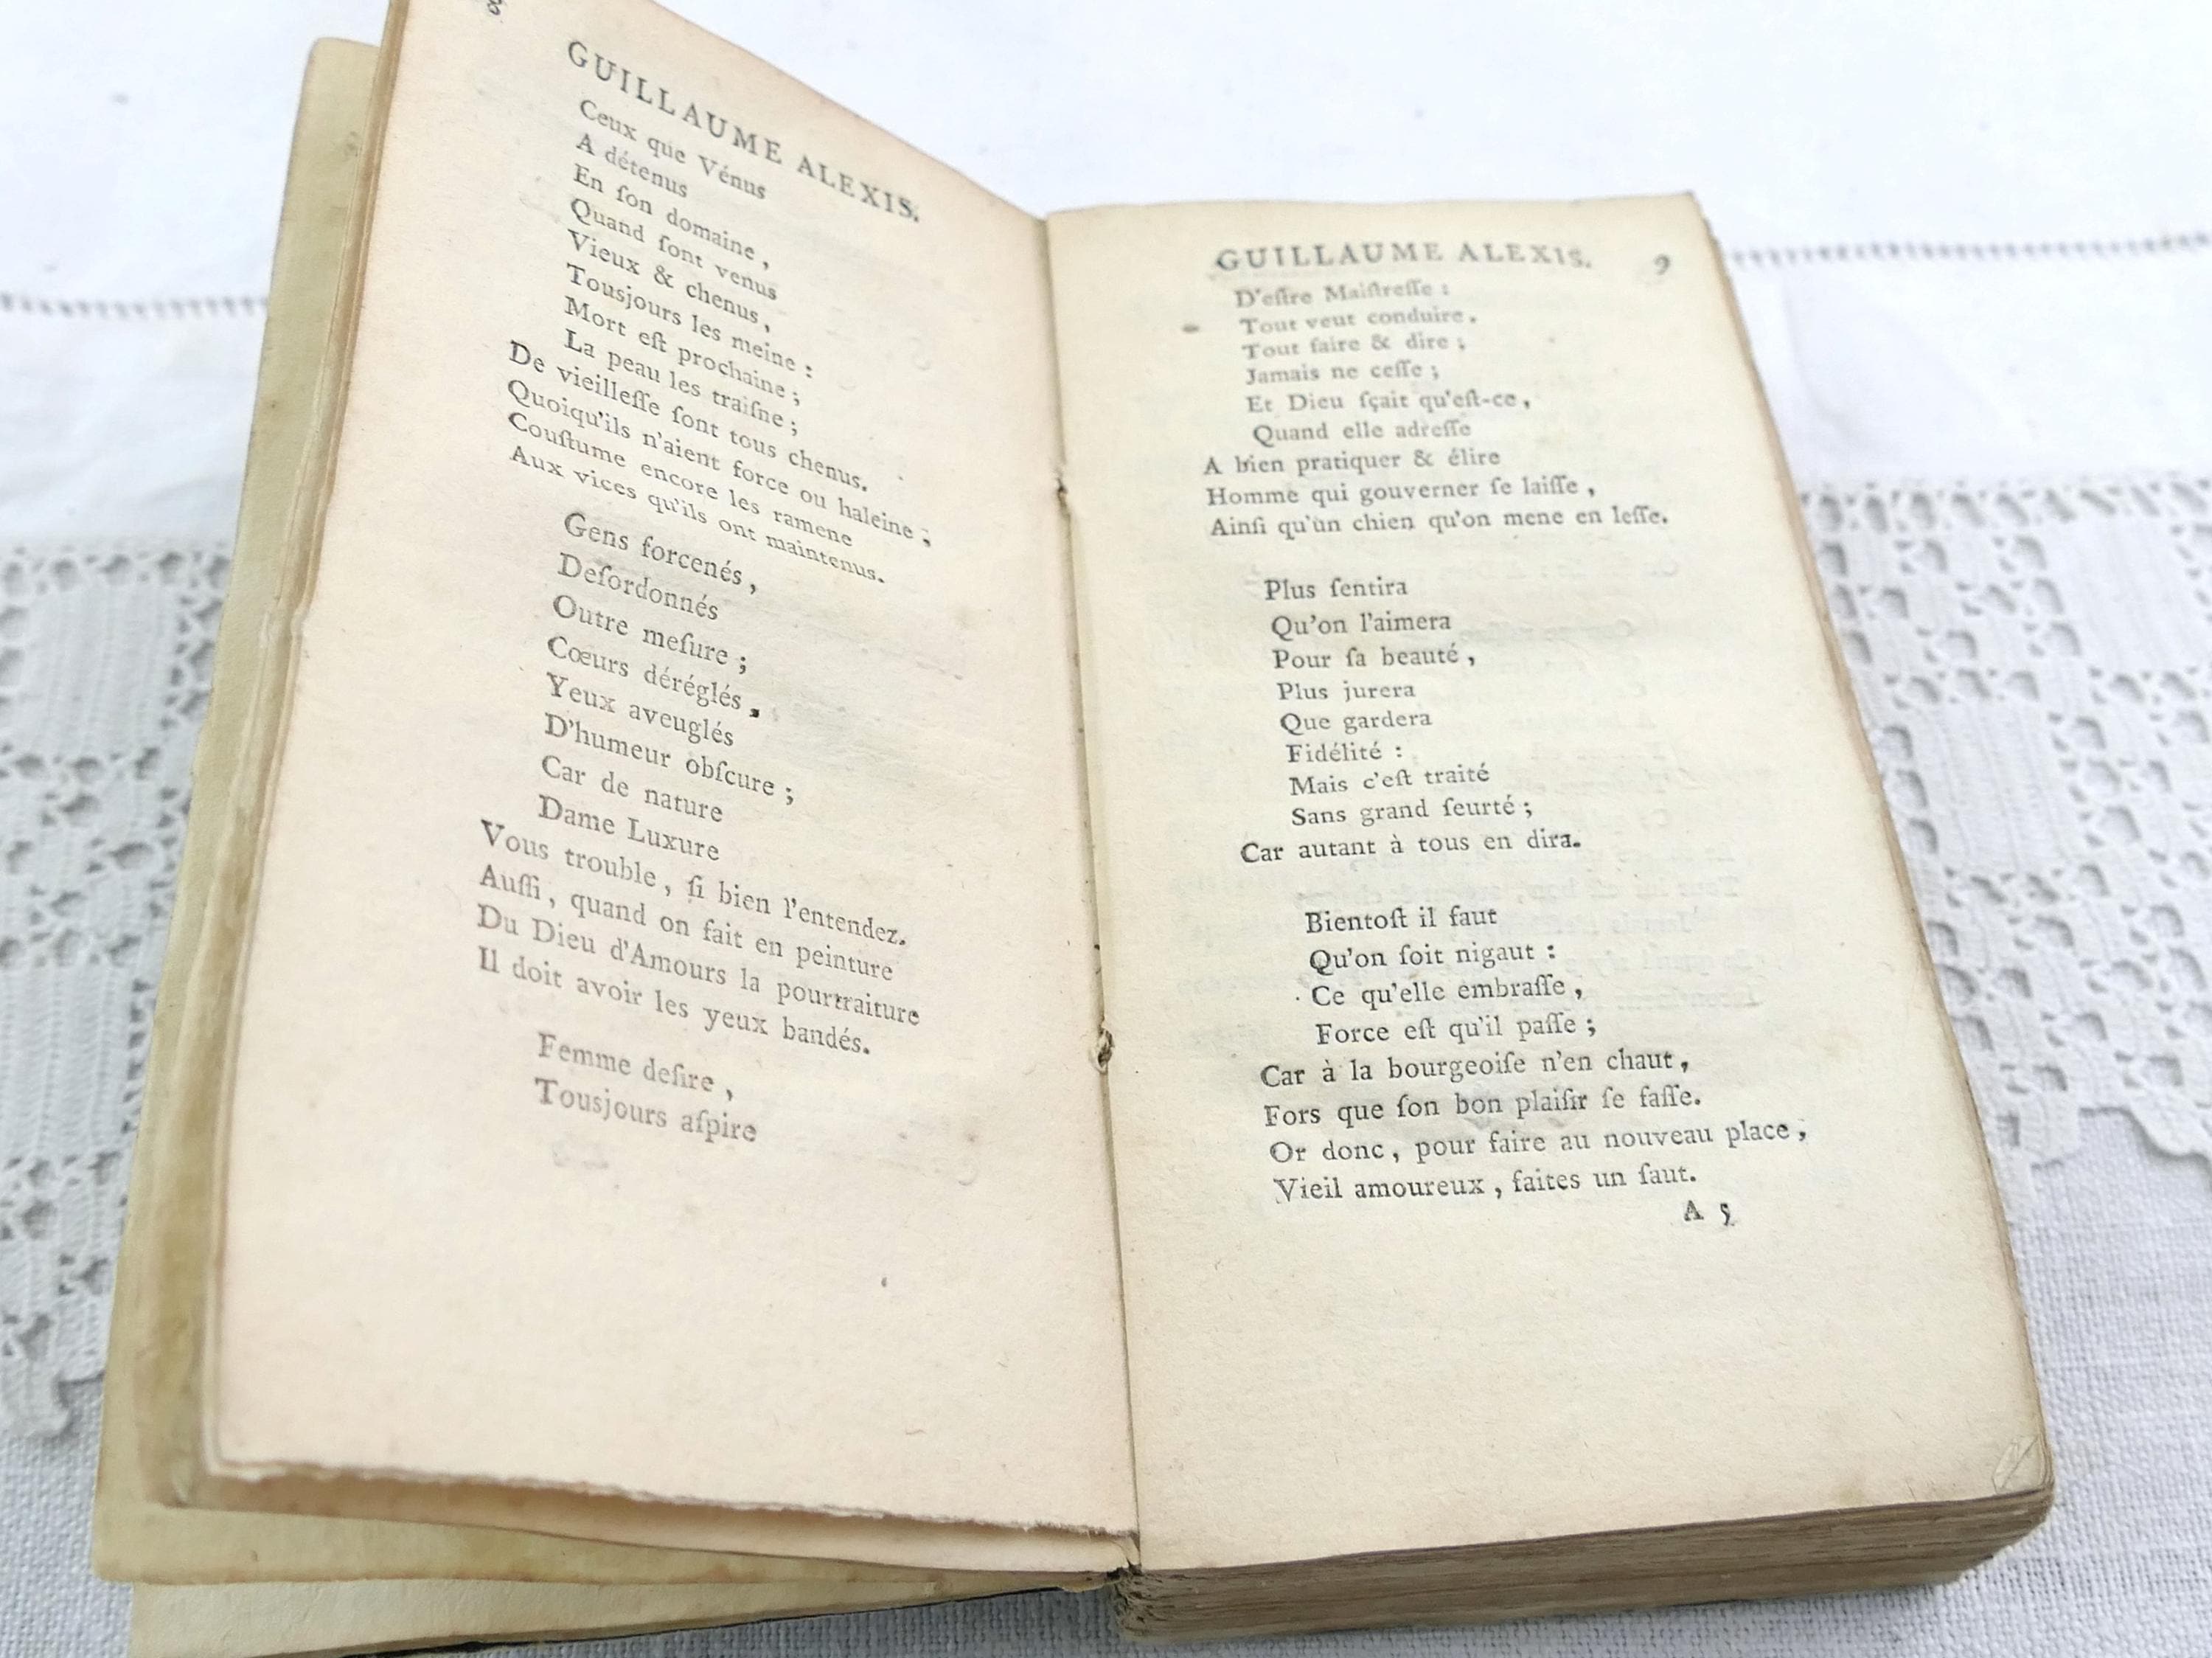 8
GUILLAUME ALEXIS.
Ceux que Vénus
A détenus
En ſon domaine,
Quand ſont venus
Vieux & chenus,
Tousjours les meine :
Mort eſt prochaine ;
La peau les traiſne ;
De vieilleſſe ſont tous chenus.
Quoiqu'ils n'aient force ou haleine ;
Couſtume encore les ramene
Aux vices qu'ils ont maintenus.
Gens forcenés,
Deſordonnés
Outre meſure ;
Cœurs déréglés,
Yeux aveuglés
D'humeur obſcure ;
Car de nature
Dame Luxure
Vous trouble, ſi bien l'entendez.
Auſſi, quand on fait en peinture
Du Dieu d'Amours la pourtraiture
Il doit avoir les yeux bandés.
Femme deſire,
Tousjours aſpire
GUILLAUME ALEXIS. 9
D'eſtre Maiſtreſſe :
Tout veut conduire,
Tout faire & dire ;
Jamais ne ceſſe ;
Et Dieu ſçait qu'eſt-ce,
Quand elle adreſſe
A bien pratiquer & élire
Homme qui gouverner ſe laiſſe,
Ainſi qu'un chien qu'on mene en leſſe.
Plus ſentira
Qu'on l'aimera
Pour ſa beauté,
Plus jurera
Que gardera
Fidélité :
Mais c'eſt traité
Sans grand ſeurté ;
Car autant à tous en dira.
Bientoſt il faut
Qu'on ſoit nigaut :
Ce qu'elle embraſſe,
Force eſt qu'il paſſe ;
Car à la bourgeoiſe n'en chaut,
Fors que ſon bon plaiſir ſe faſſe.
Or donc, pour faire au nouveau place,
Vieil amoureux, faites un ſaut.
A 5